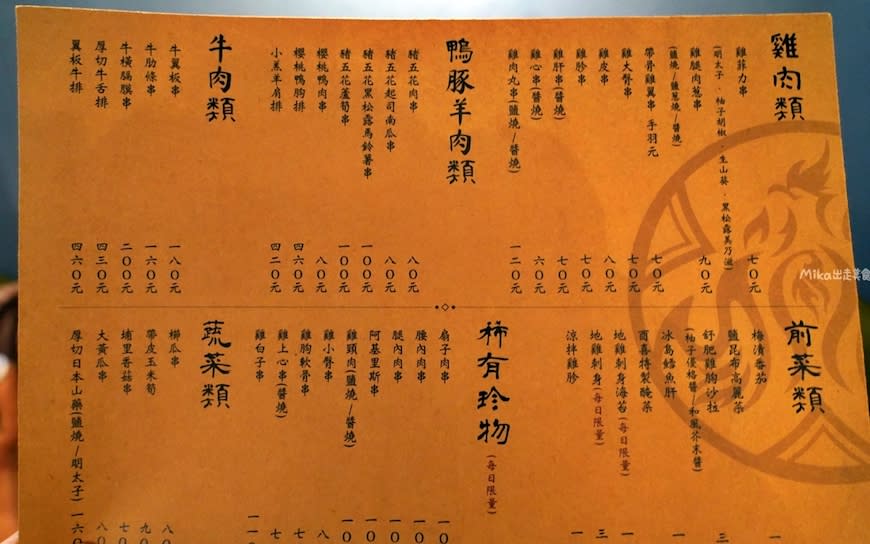 雞肉類
雞菲力串 七〇元
(明太子．柚子胡椒．生山葵．黑松露美乃滋)
雞腿肉蔥串 九〇元
(鹽燒/鹽蔥燒/醬燒)
帶骨雞翼串 手羽元 七〇元
雞大臀串 七〇元
雞皮串 八〇元
雞胗串 七〇元
雞肝串(醬燒) 七〇元
雞心串(醬燒) 六〇元
雞肉丸串(鹽燒/醬燒) 一二〇元
鴨豚羊肉類
豬五花肉串 八〇元
豬五花起司南瓜串 八〇元
豬五花黑松露馬鈴薯串 一〇〇元
豬五花蘆筍串 一〇〇元
櫻桃鴨肉串 八〇元
櫻桃鴨胸排 四六〇元
小羔羊肩排 四二〇元
牛肉類
牛翼板串 一八〇元
牛肋條串 一六〇元
牛橫膈膜串 二〇〇元
厚切牛舌排 四三〇元
翼板牛排 四六〇元
前菜類
梅漬番茄
鹽昆布高麗菜
舒肥雞胸沙拉
(柚子優格醬/和風芥末醬)
冰島鱈魚肝
酉喜特製醃菜
地雞刺身海苔(每日限量)
地雞刺身(每日限量)
涼拌雞胗
稀有珍物
(每日限量)
扇子肉串
腰內肉串
腿內肉串
阿基里斯串
雞頸肉(鹽燒/醬燒)
雞小臀串
雞胸軟骨串
雞上心串(醬燒)
雞白子串
蔬菜類
櫛瓜串
帶皮玉米筍
埔里香菇串
大黃瓜串
厚切日本山藥(鹽燒/明太子) 一六〇
Mika出走美食